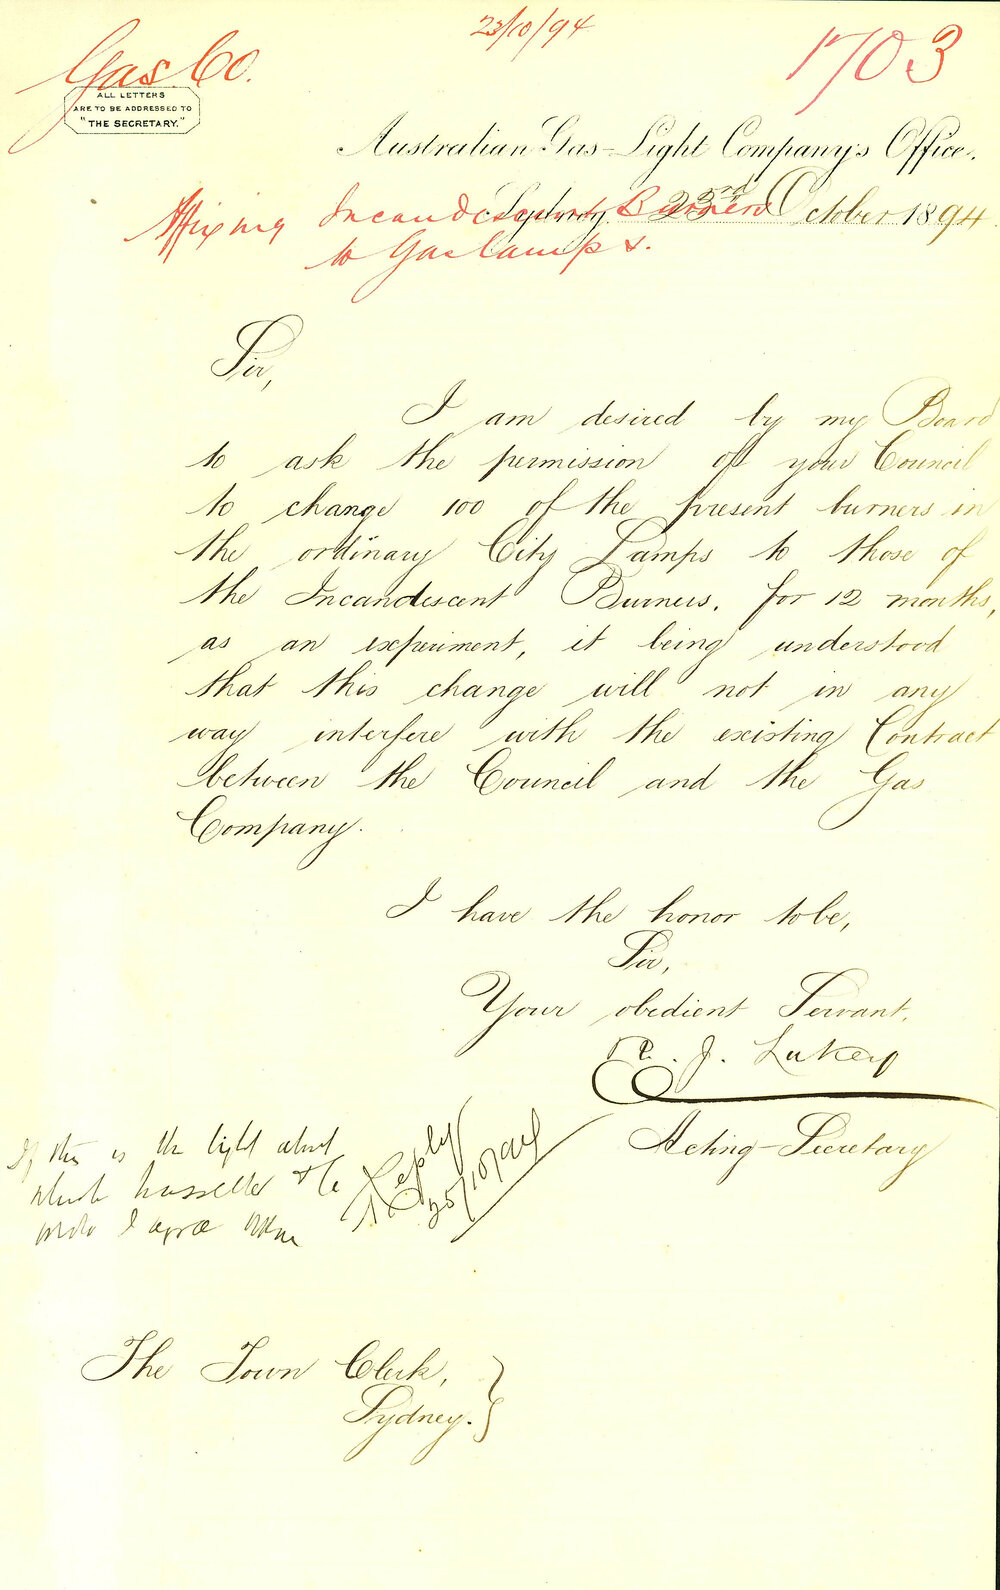 Gas Co.
23/10/94
1703
ALL LETTERS
ARE TO BE ADDRESSED TO
"THE SECRETARY."
Australian Gas-Light Company's Office.
Sydney 23rd October 1894
Affixing Incandescent Burners
to Gas Lamps.
Sir,
I am desired by my Board
to ask the permission of your Council
to change 100 of the present burners in
the ordinary City Lamps to those of
the Incandescent Burners, for 12 months,
as an experiment, it being understood
that this change will not in any
way interfere with the existing Contract
between the Council and the Gas
Company.
I have the honor to be,
Sir,
Your obedient Servant,
J. Lukey
Acting-Secretary
If this is the light about
which
I agree
Reply
25/10/94
The Town Clerk,
Sydney.